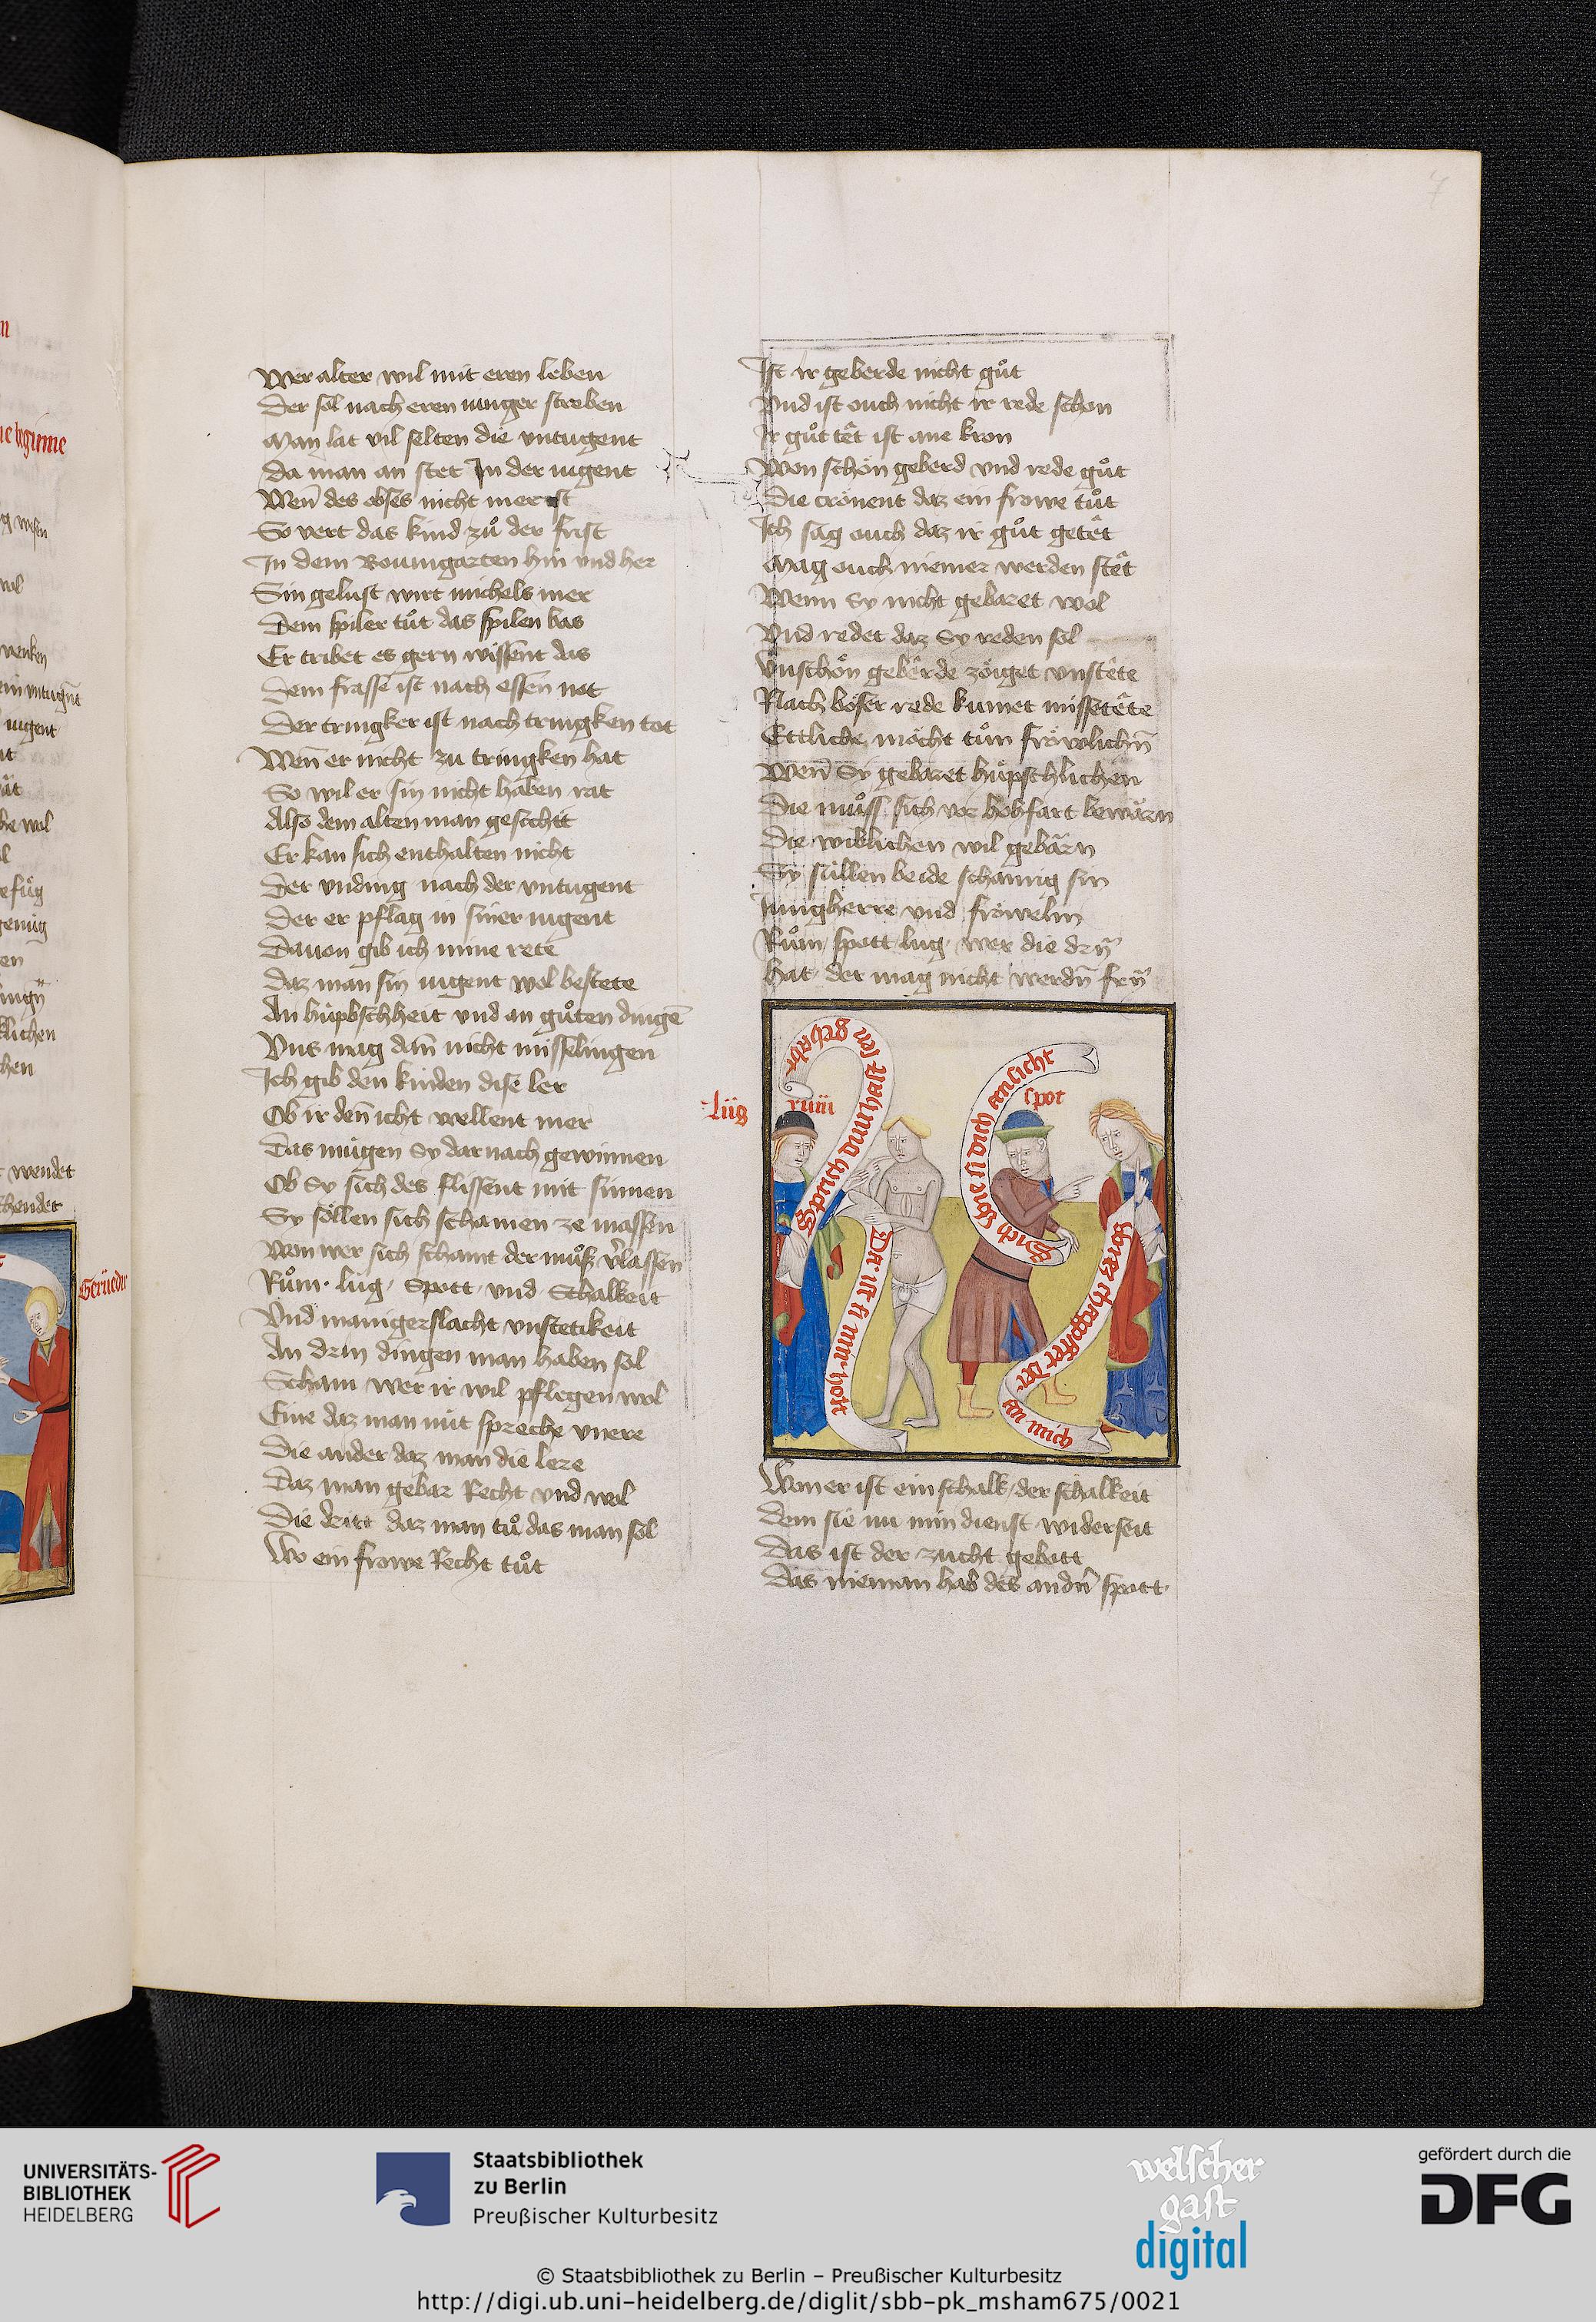 7
Wer alter wil mit eren leben
Der sol nach eren iunger streben
Man lat vil selten die vntugent
Da man an stet In der iugent
Wen̄ des obses nicht mer ist
So vert das kind zuͦ der frist
In dem Boumgarten hin vnd her
Sin gelust wirt michels mer
Dem spiler tuͦt das spilen bas
Er tribet es gern wissent das
Dem frasse ist nach essen not
Der tringker ist nach tringken tot
Wen̄ er nicht zu tringken hat
So wil er sin nicht haben rat
Also dem alten man geschicht
Er kan sich enthalten nicht
Der vnding nach der vntugent
Der er pflag in siner iugent
Dauon gib ich mine rete
Daz man sin iugent wol bestete
An hüpbschheit vnd an guͦten dingē
Vns mag dan̄ nicht misselingen
Ich gib den kinden dise ler
Ob ir den̄ icht wellent mer
Das mügen Sy dar nach gewinnen
Ob Sy sich des flissent mit sinnen
Sy söllen sich schamen ze massen
Won wer sich schamt der muͦß v̄lassen
Ruͦm · lug · Spott · vnd Schalkeit
Vnd manigerslacht vnstetikeit
An drin dingen man haben sol
Scham wer ir wil pflegen wol
Eine daz man nüt spreche vnere
Die ander daz man die lere
Daz man gebar Recht vnd wol
Die dritt daz man tuͦ das man sol
Wo ein frowe Recht tuͦt
Ist ir geberde nicht guͦt
Vnd ist ouch nicht ir rede schon
Ir guͦt têt ist ane kron
Won schön geberd vnd rede guͦt
Die crönent daz ein frowe tuͦt
Ich sag ouch daz ir guͦt getêt
Mag ouch niemer werden stêt
Wenn Sy nicht gebaret wol
Vnd redet daz Sy reden sol
Vnschön gebêrde zöiget vnstête
Nach böser rede kumet missetête
Ettliche möcht tuͦn fröwlichn̄
Wen̄ Sy gebaret hüpschlichen
Die muͦss sich vor hohfart bewärn
Die wiblichen wil gebärn
Sy süllen beide schamig sin
Jungherre vnd fröwelin
Ruͦm spott lug wer die dry
hat der mag nicht werdn̄ fry
Lüg
rüm
spot
Sprich du hast
gehabt
Da ist si min hort
Sich wie si dich ansicht
an mich
Won er ist ein schalk / der schalkeit
Dem sie nu min dienst widerseit
Das ist der zucht gebott
Das nieman hab des andn̄ spott
Gerüede
UNIVERSITÄTS-
BIBLIOTHEK
HEIDELBERG
Staatsbibliothek
zu Berlin
Preußischer Kulturbesitz
welscher
gast
digital
gefördert durch die
DFG
© Staatsbibliothek zu Berlin – Preußischer Kulturbesitz
http://digi.ub.uni-heidelberg.de/diglit/sbb-pk_msham675/0021